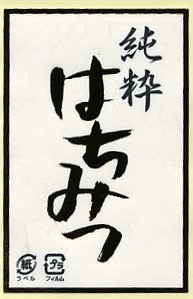 純粋
はちみつ
紙
ラベル
プラ
フィルム